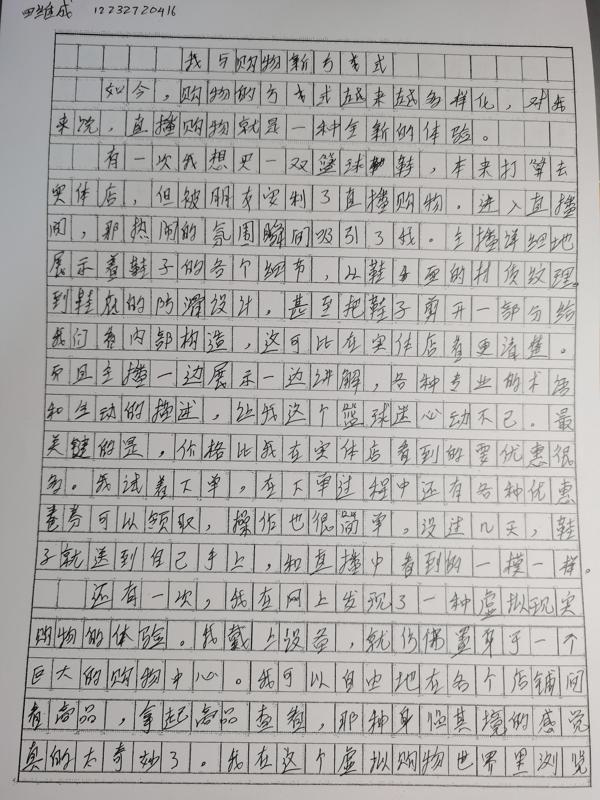 田维成 12232720416
我与购物新方式
如今，购物的方式越来越多样化，对我
来说，直播购物就是一种全新的体验。
有一次我想买一双篮球鞋，本来打算去
实体店，但被朋友安利了直播购物。进入直播
间，那热闹的氛围瞬间吸引了我。主播详细地
展示着鞋子的各个细节，从鞋面的材质纹理
到鞋底的防滑设计，甚至把鞋子剪开一部分给
我们看内部构造，这可比在实体店看更清楚。
而且主播一边展示一边讲解，各种专业的术语
和生动的描述，让我这个篮球迷心动不已。最
关键的是，价格比我在实体店看到的要优惠很
多。我试着下单，在下单过程中还有各种优惠
券可以领取，操作也很简单。没过几天，鞋
子就送到自己手上，和直播中看到的一模一样。
还有一次，我在网上发现了一种虚拟现实
购物的体验。我戴上设备，就仿佛置身于一个
巨大的购物中心。我可以自由地在各个店铺间
看商品，拿起商品查看，那种身临其境的感觉
真的太奇妙了。我在这个虚拟购物世界里浏览